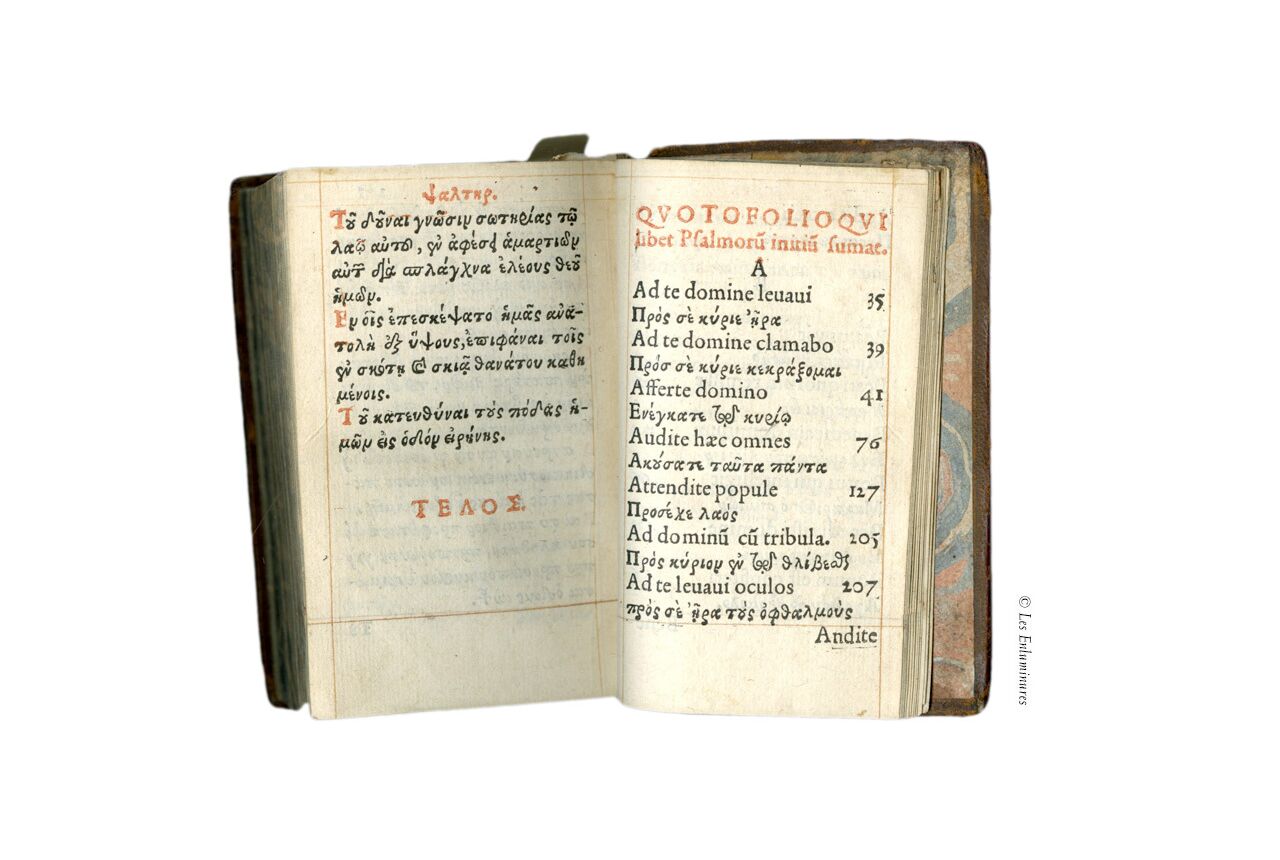 ψαλτηρ.
Τοῦ δοῦναι γνῶσιν σωτηρίας τῷ
λαῷ αὐτοῦ, ἐν ἀφέσει ἁμαρτιῶν
αὐτῶν διὰ σπλάγχνα ἐλέους θεοῦ
ἡμῶν.
Εν οἷς ἐπεσκέψατο ἡμᾶς ἀνα-
τολὴ ἐξ ὕψους, ἐπιφάναι τοῖς
ἐν σκότει καὶ σκιᾷ θανάτου καθη
μένοις.
Τοῦ κατευθύναι τοὺς πόδας ἡ-
μῶν εἰς ὁδὸν εἰρήνης.
ΤΕΛΟΣ.
QVOTO FOLIO QVI
libet Psalmorũ initiũ sumat.
A
Ad te domine leuaui 35
Πρὸς σὲ κύριε ἦρα
Ad te domine clamabo 39
Πρόσ σὲ κύριε κεκράξομαι
Afferte domino 41
Ενέγκατε τῷ κυρίῳ
Audite hæc omnes 76
Ακούσατε ταῦτα πάντα
Attendite popule 127
Προσέχε λαὸς
Ad dominũ cũ tribula. 205
Πρὸς κύριον ἐν τῷ θλίβεσθαι
Ad te leuaui oculos 207
πρὸς σὲ ἦρα τοὺς ὀφθαλμοὺς
Andite
© Les Enluminures